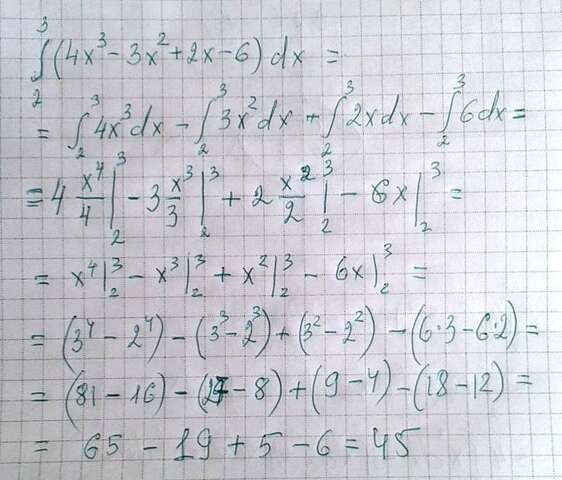 ∫₂³ (4x³ − 3x² + 2x − 6) dx =
= ∫₂³ 4x³dx − ∫₂³ 3x²dx + ∫₂³ 2xdx − ∫₂³ 6dx =
= 4 x⁴/4 |₂³ − 3 x³/3 |₂³ + 2 x²/2 |₂³ − 6x |₂³ =
= x⁴|₂³ − x³|₂³ + x²|₂³ − 6x|₂³ =
= (3⁴ − 2⁴) − (3³ − 2³) + (3² − 2²) − (6·3 − 6·2) =
= (81 − 16) − (27 − 8) + (9 − 4) − (18 − 12) =
= 65 − 19 + 5 − 6 = 45